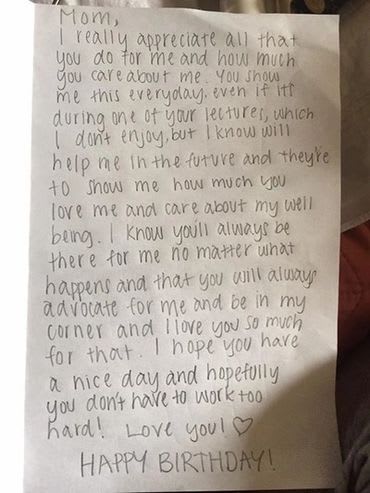 Mom,
I really appreciate all that
you do for me and how much
you care about me. You show
me this everyday. even if it's
during one of your lectures, which
I don't enjoy, but I know will
help me in the future and they're
to show me how much you
love me and care about my well
being. I know you'll always be
there for me no matter what
happens and that you will always
advocate for me and be in my
corner and I love you so much
for that. I hope you have
a nice day and hopefully
you don't have to work too
hard! Love you! ♡
HAPPY BIRTHDAY!